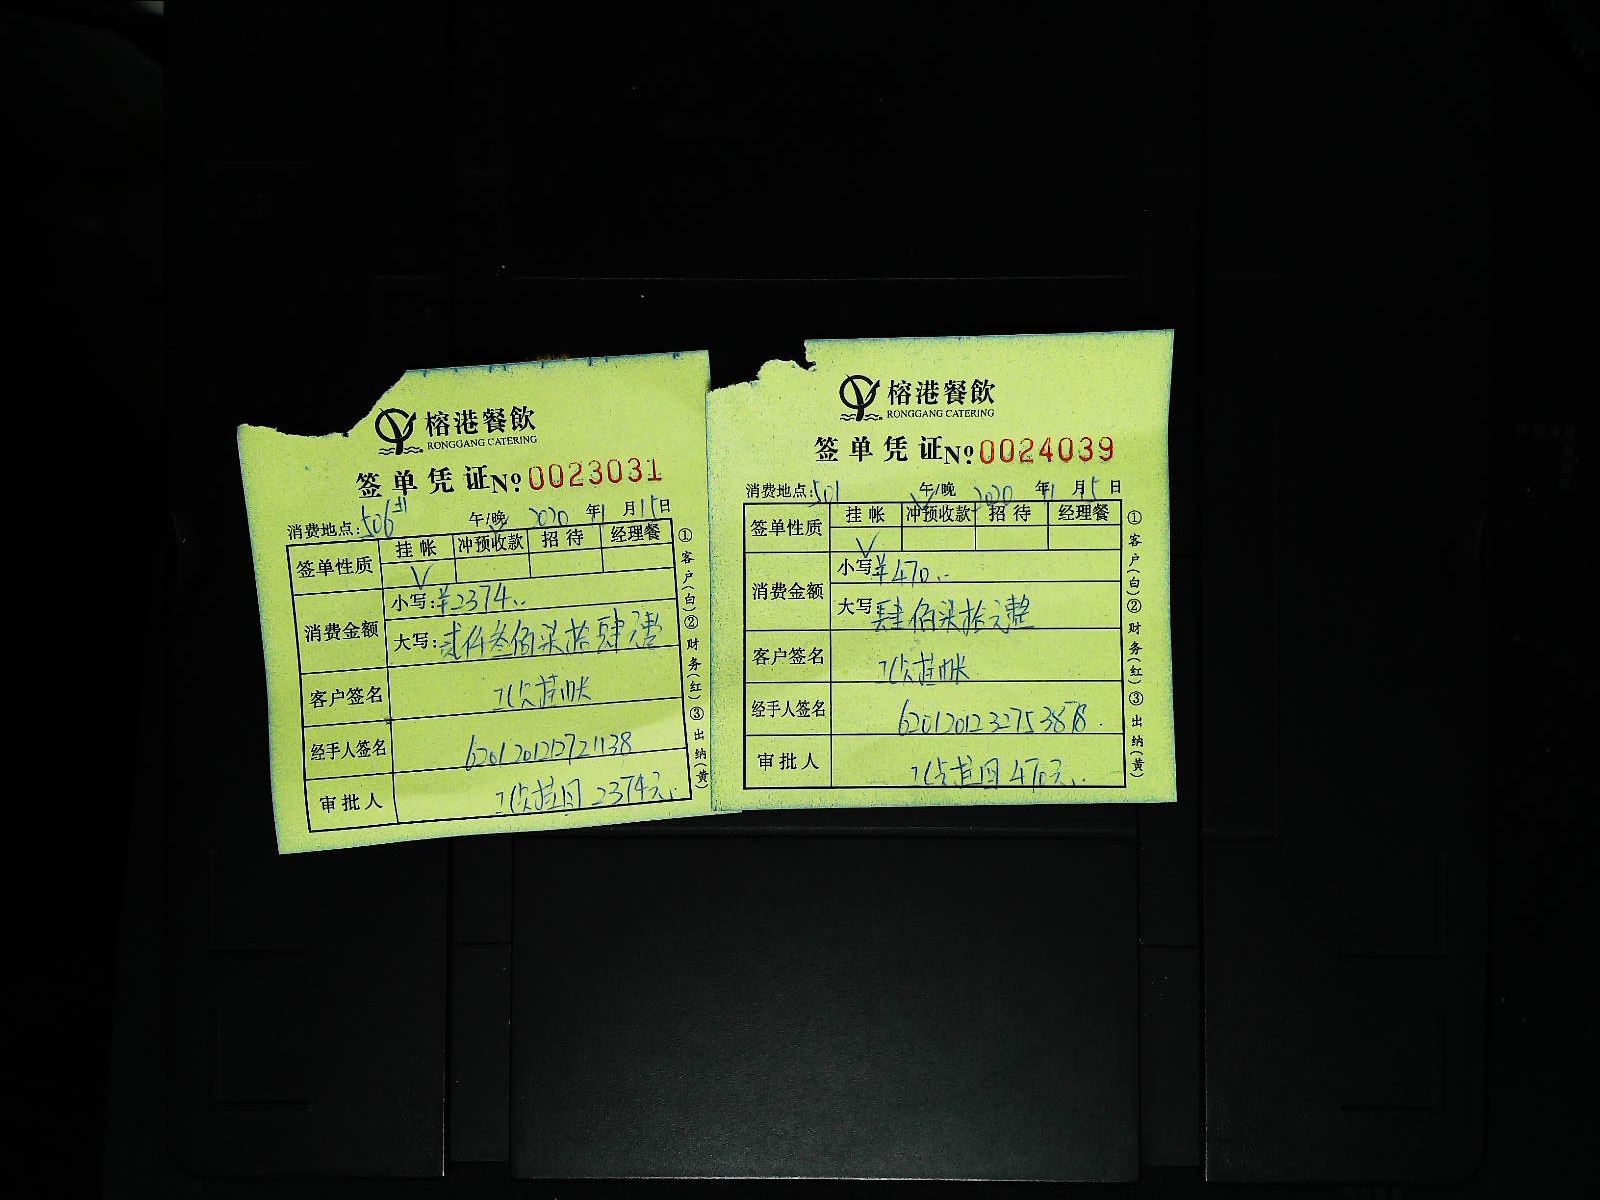 榕港餐飲
RONGGANG CATERING
签单凭证 № 0023031
消费地点:506 午/晚 2020年1月15日
签单性质 挂帐 冲预收款 招待 经理餐
√
消费金额 小写:¥2374..
大写:贰仟叁佰柒拾肆元整
客户签名 挂帐
经手人签名 6201201212721138
审批人 2374元..
①客户(白)②财务(红)③出纳(黄)
榕港餐飲
RONGGANG CATERING
签单凭证 № 0024039
消费地点:501 午/晚 2020年1月5日
签单性质 挂帐 冲预收款 招待 经理餐
√
消费金额 小写¥470..
大写肆佰柒拾元整
客户签名 挂帐
经手人签名
审批人 470元..
①客户(白)②财务(红)③出纳(黄)